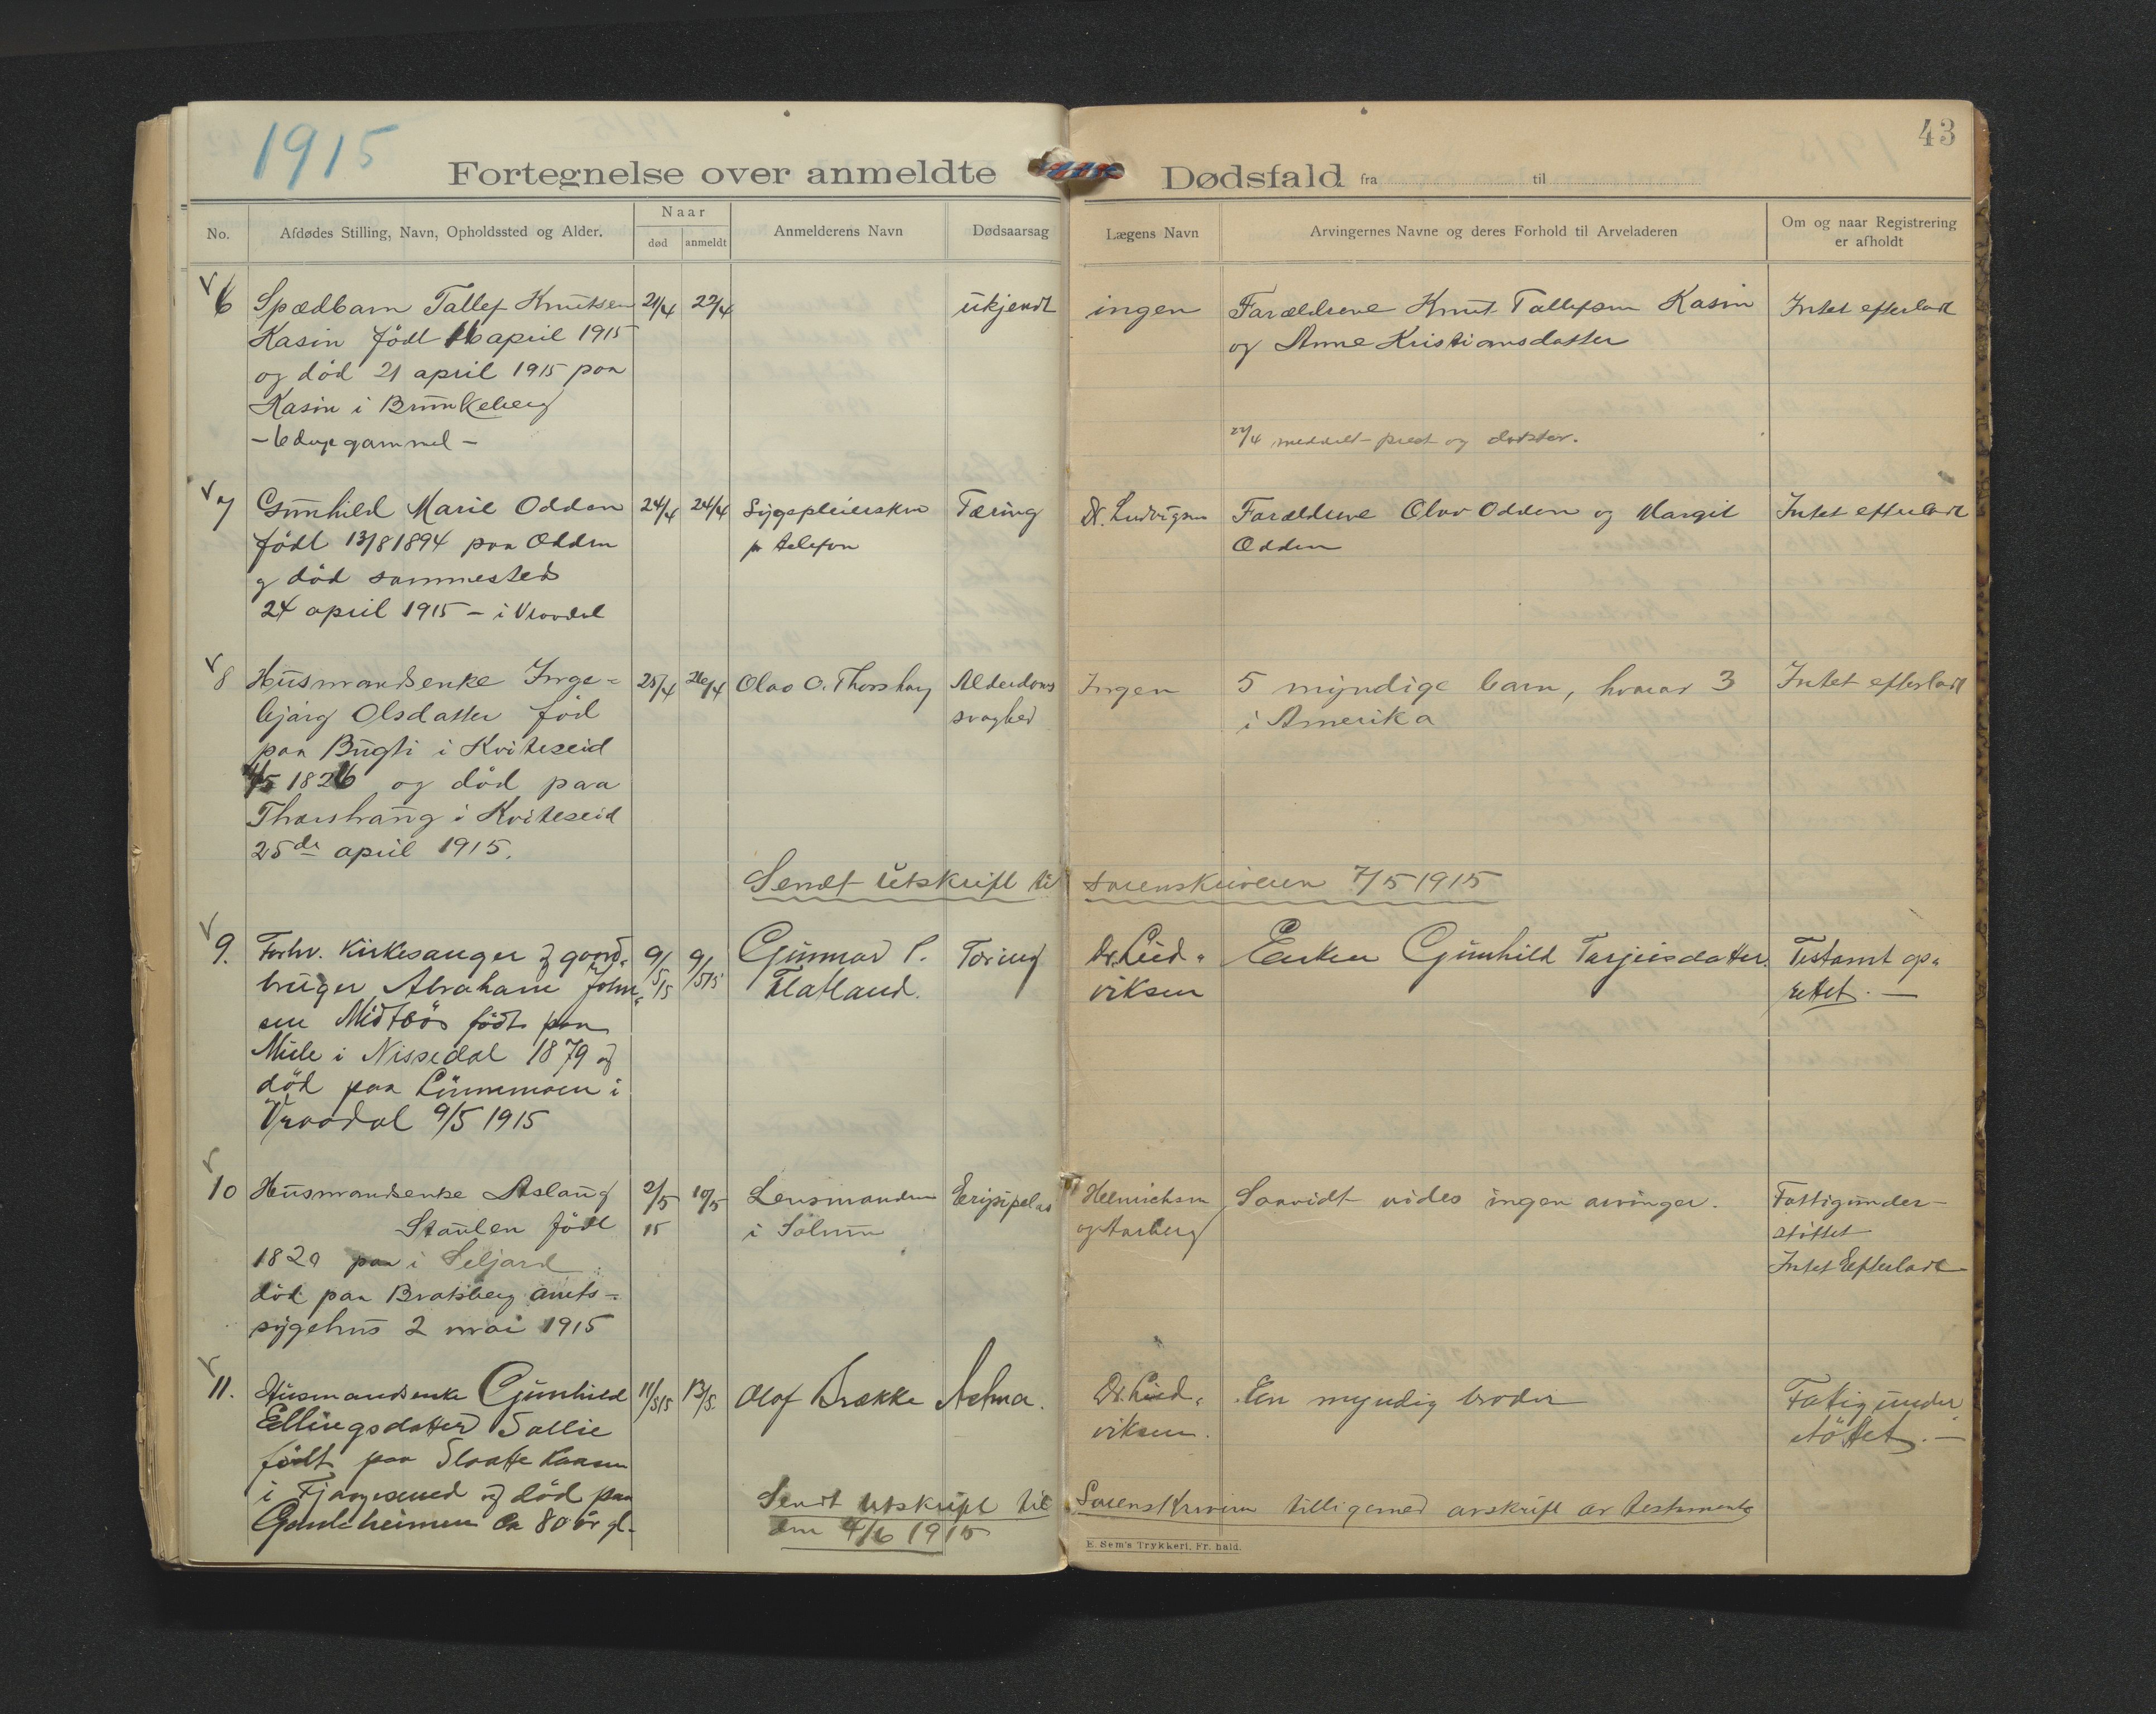 1915
43
Fortegnelse over anmeldte Dødsfald fra til
No.
Afdødes Stilling, Navn, Opholdssted og Alder.
Naar
død
anmeldt
Anmelderens Navn
Dødsaarsag
Lægens Navn
Arvingernes Navne og deres Forhold til Arveladeren
Om og naar Registrering
er afholdt
6 Spædbarn Tallef Knutsen 21/4 22/4 ukjendt ingen Forældrene Knut Tallefsen Kasin Intet efterladt
Kasin født 16 april 1915 og Anne Kristiansdatter
og død 21 april 1915 paa
Kasin i Brunkeberg
- 6 dage gammel - 22/4 meddelt prest og doktor.
7 Gunhild Marie Odden 24/4 24/4 Sygepleiersken Tæring Dr. Ludvigsen Forældrene Olav Odden og Margit Intet efterladt
født 13/8 1894 paa Odden pr telefon Odden
og død sammesteds
24 april 1915 - i Vraadal
8 Husmandsenke Inge= 25/4 26/4 Olav O. Thorshaug Alderdoms Ingen 5 myndige barn, hvorav 3 Intet efterladt
bjørg Olsdatter fød svaghed i Amerika
paa Bugti i Kviteseid
/5 1826 og død paa
Thorshaug i Kviteseid
25de april 1915.
Sendt utskrift til sorenskriveren 7/5 1915
9. Forhv. Kirkesanger og gaard- 9/5 15 9/5 15 Gunnar P. Tæring Dr. Lud- Enken Gunhild Tarjeisdatter. Testamt op-
bruger Abraham John- Flatland. viksen rettet. —
sen Midtbøs født paa
Mule i Nissedal 1879 og
død paa Linnemoen i
Vraadal 9/5 1915
10 Husmandsenke Aslaug 2/5 10/5 Lensmanden Erysipelas Helmichsen Saavidt vides ingen arvinger. Fattigunder-
Staulen født 15 i Solum og Aarberg støttet
1829 paa i Seljord Intet Efterladt
død paa Bratsberg amts-
sygehus 2 mai 1915
11. Husmandsenke Gunhild 11/5 15 13/5. Olof Brække Astma. Dr. Lud- En myndig broder Fatigunder
Ellingsdatter Sallie viksen. støttet. —
født paa Slaatte Kaasen
i Fjaagesund og død paa
Gamleheimen ca 80 år gl.
Sendt utskrift til Sorenskriveren tilligemed avskrift av testamente
den 4/6 1915
E. Sem's Trykkeri, Fr. hald.